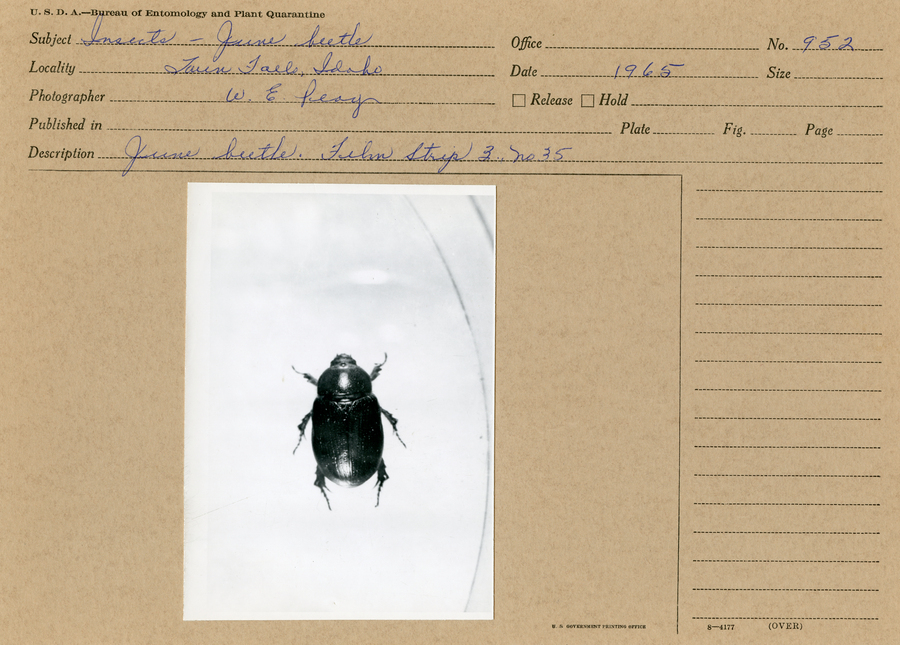 U. S. D. A.—Bureau of Entomology and Plant Quarantine
Subject Insects - June beetle Office No. 952
Locality Twin Falls, Idaho Date 1965 Size
Photographer W. E Peay Release Hold
Published in Plate Fig. Page
Description June beetle. Film Strip 3. no 35
U. S. GOVERNMENT PRINTING OFFICE 8—4177 (OVER)